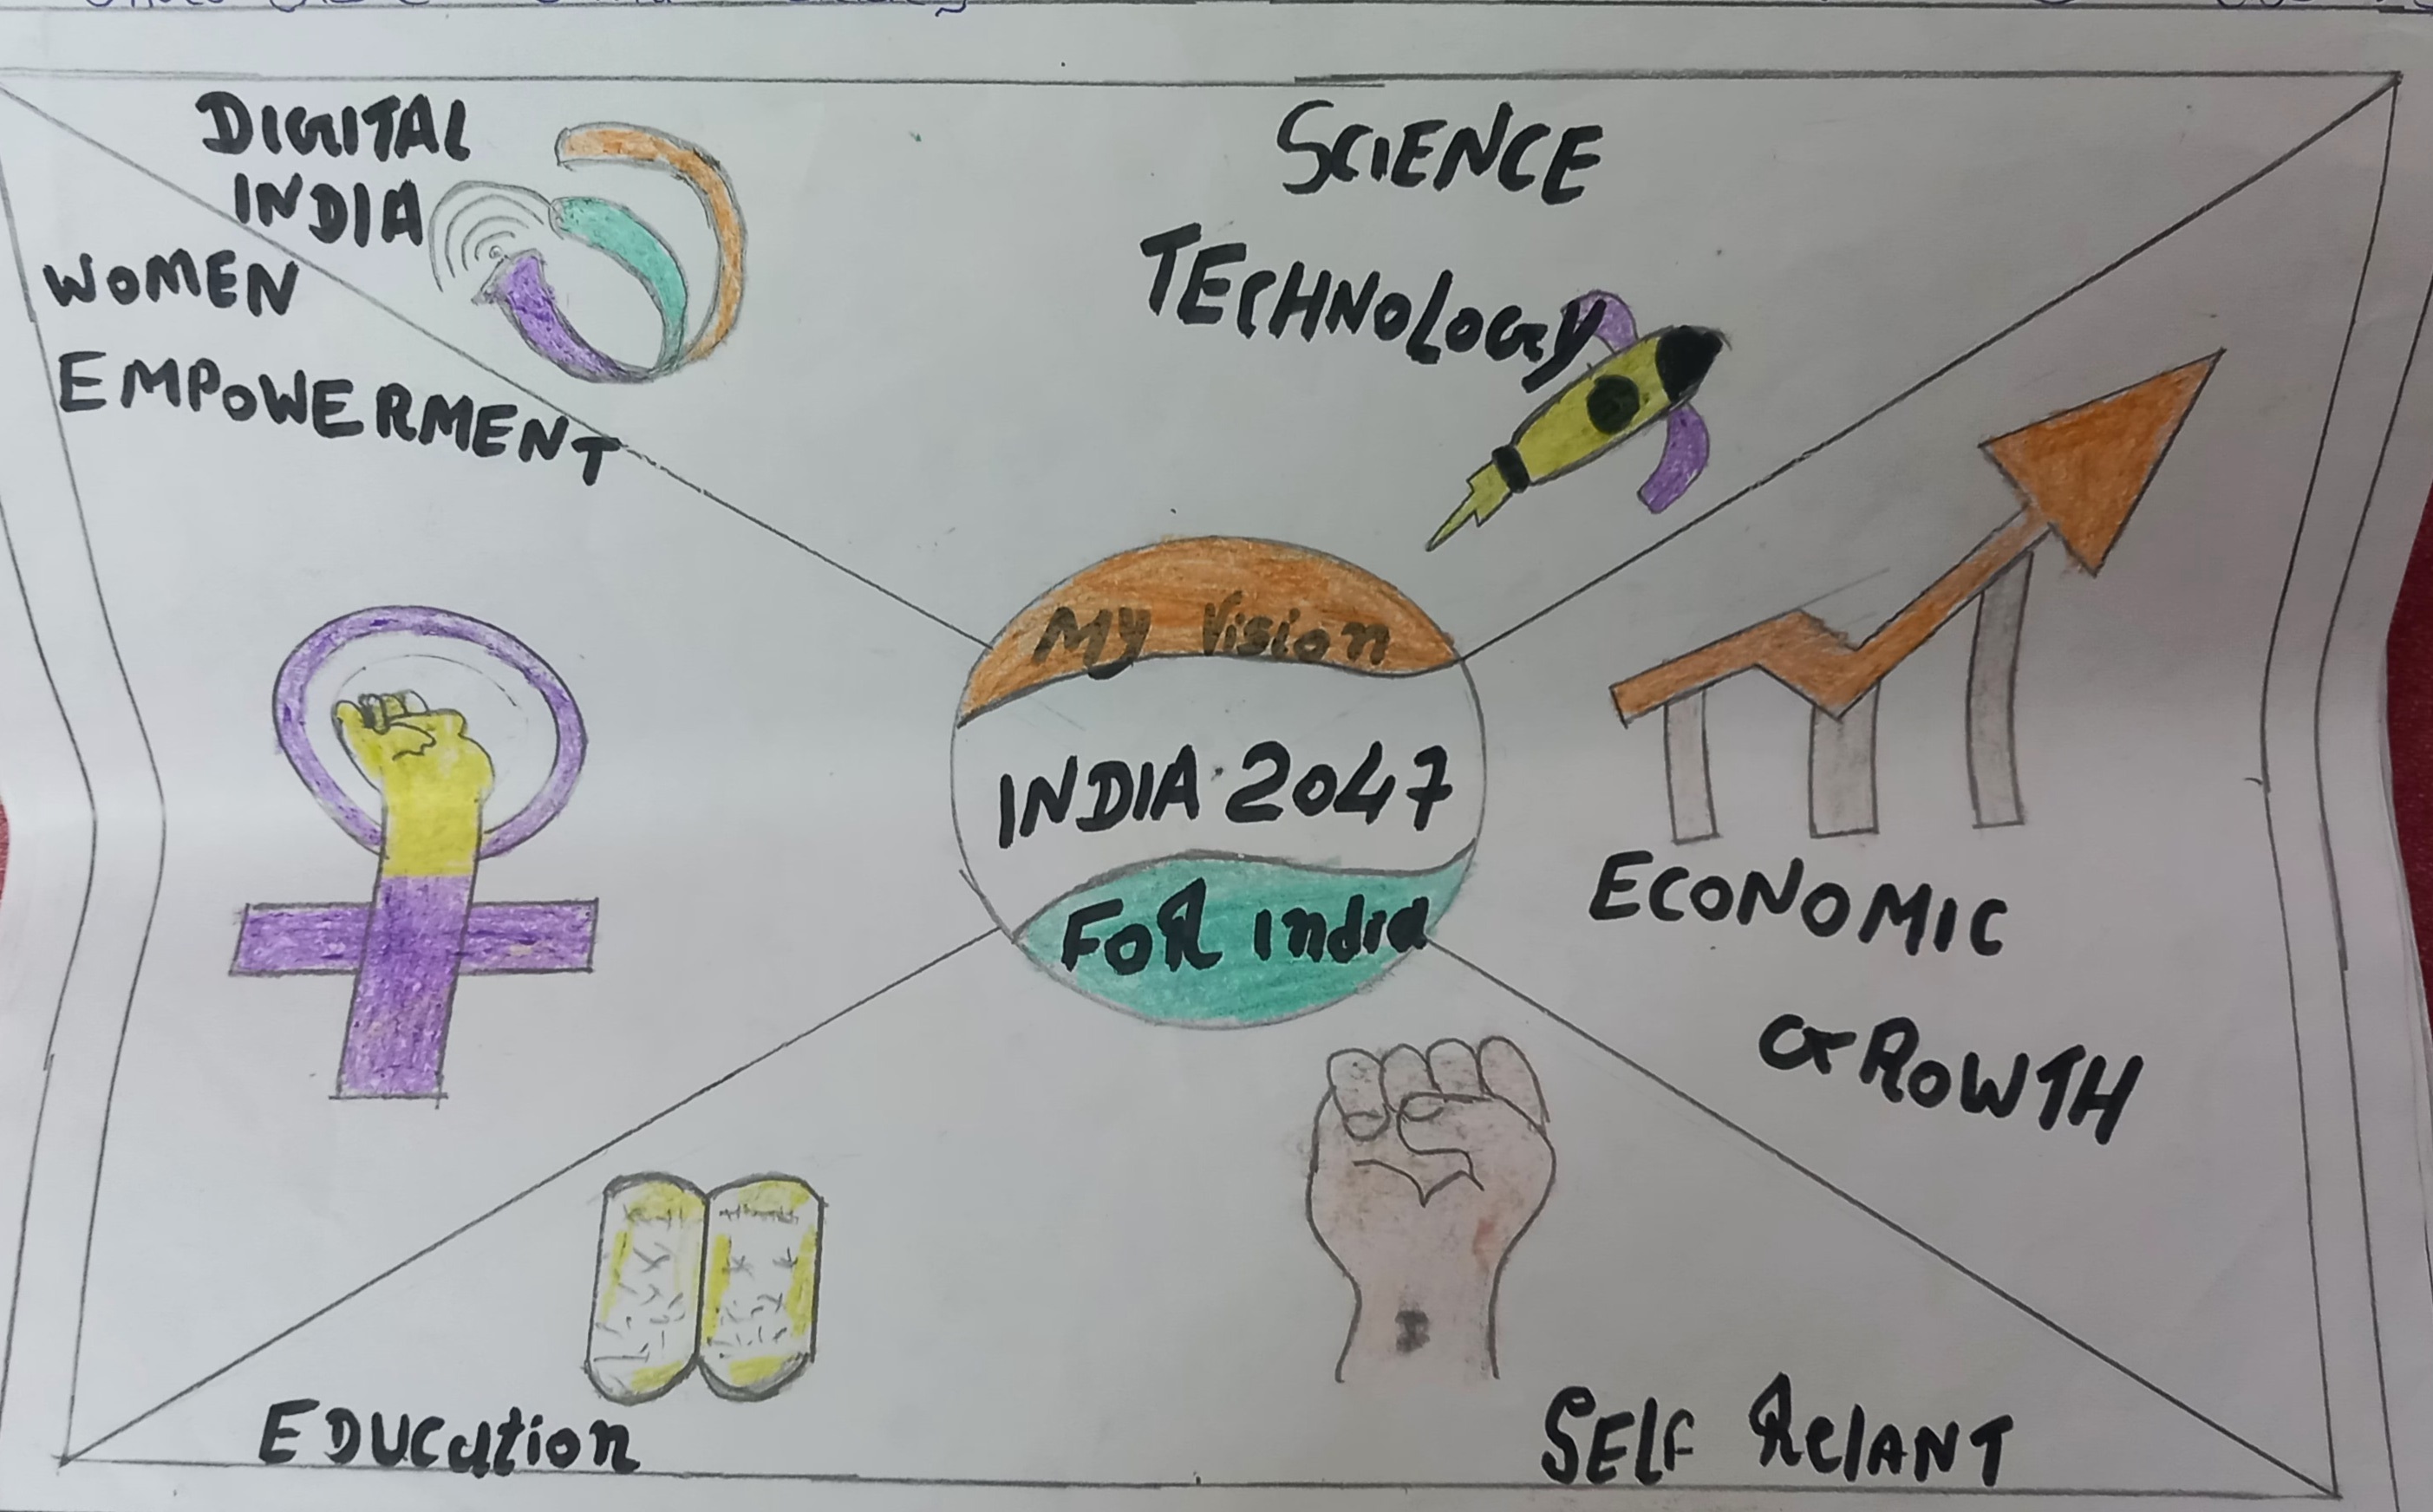 DIGITAL
INDIA
WOMEN
EMPOWERMENT
SCIENCE
TECHNOLOGY
My Vision
INDIA 2047
FOR India
ECONOMIC
GROWTH
EDUCation
SELF RelANT